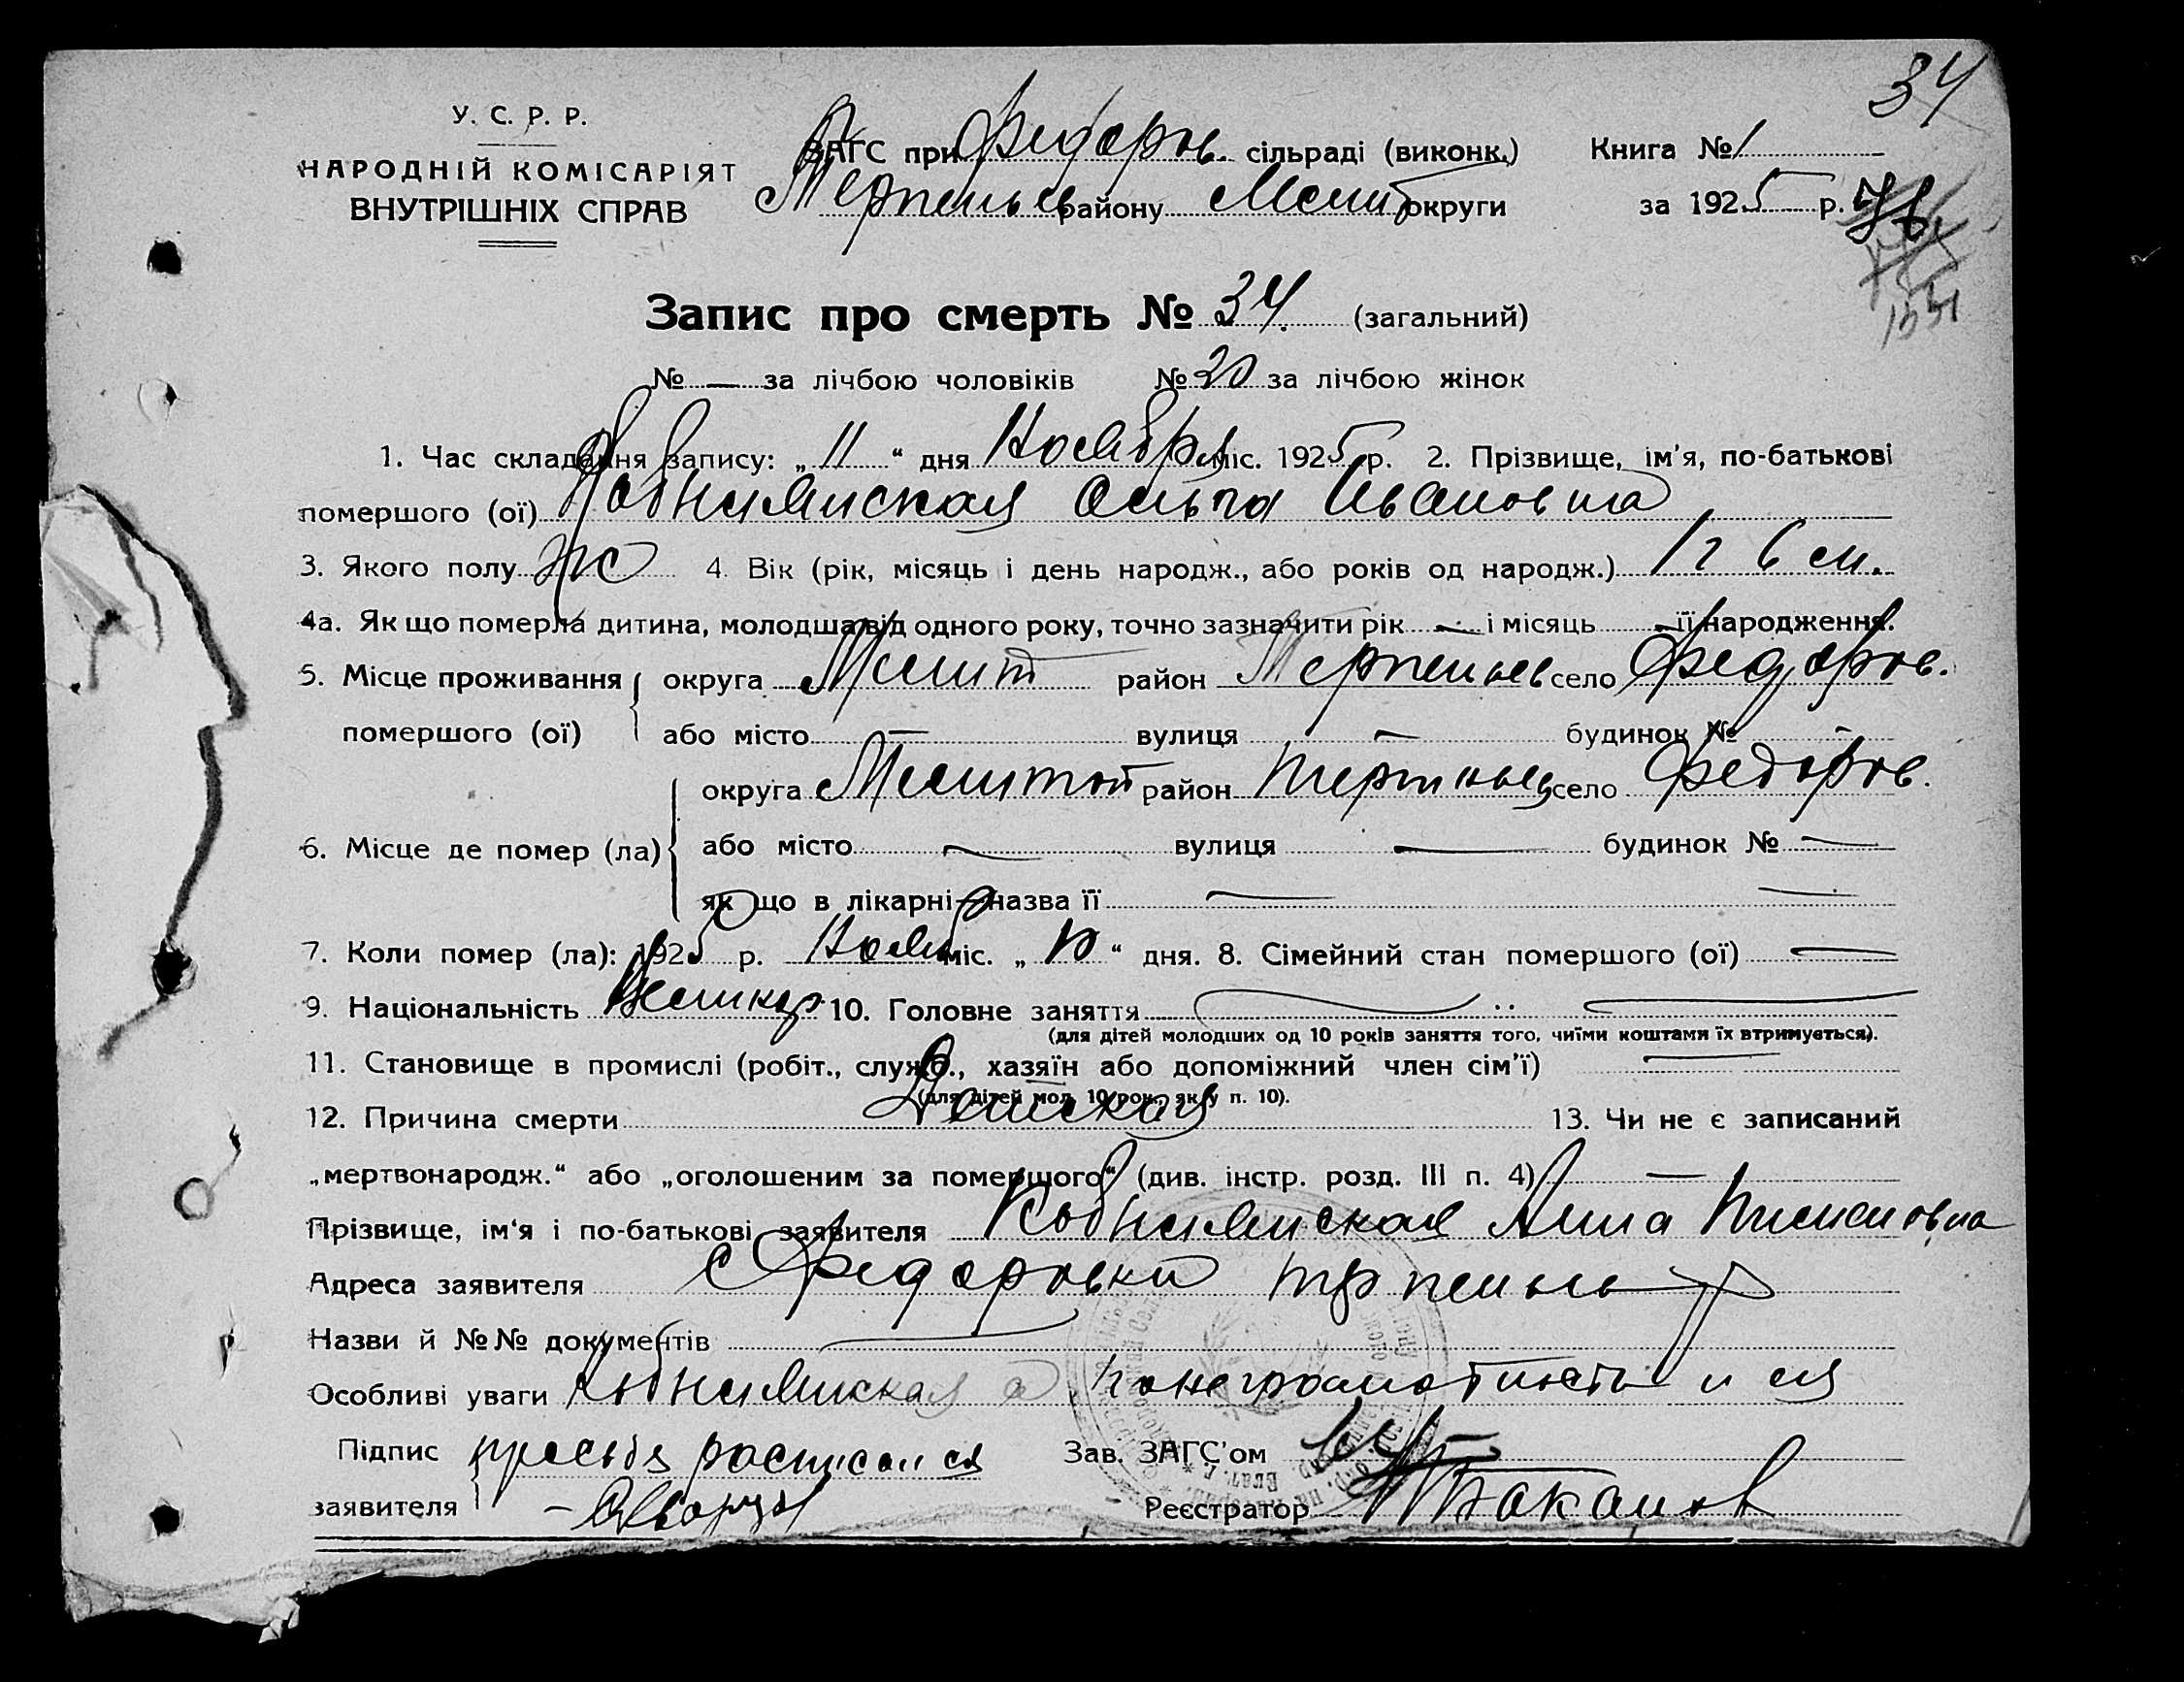 34
У. С. Р. Р.
НАРОДНІЙ КОМІСАРІЯТ
ВНУТРІШНІХ СПРАВ
ЗАГС при Федоров. сільраді (виконк.) Книга № 1
Терпеньев району Мелит округи за 1925 р.
Запис про смерть № 34. (загальний)
№ — за лічбою чоловіків № 20 за лічбою жінок
1. Час складання запису: „ 11 “ дня Ноября міс. 1925 р. 2. Прізвище, ім’я, по-батькові
помершого (ої) Ольга Ивановна
3. Якого полу ж 4. Вік (рік, місяць і день народж., або років од народж.) 1 г 6 м.
4а. Як що померла дитина, молодша від одного року, точно зазначити рік — і місяць — її народження.
5. Місце проживання округа Мелит район Терпеньев село Федоров.
помершого (ої) або місто — вулиця — будинок № —
округа Мелитоп район село Федоров.
6. Місце де помер (ла) або місто — вулиця — будинок № —
як що в лікарні—назва її — —
7. Коли помер (ла): 1925 р. Нояб міс. „ 10 “ дня. 8. Сімейний стан помершого (ої) —
9. Національність 10. Головне заняття —
(для дітей молодших од 10 років заняття того, чиїми коштами їх втримується).
11. Становище в промислі (робіт., служб., хазяїн або допоміжний член сім’ї) —
(для дітей мол. 10 рок., як у п. 10).
12. Причина смерти Детская 13. Чи не є записаний
„мертвонародж.“ або „оголошеним за померщого“ (див. інстр. розд. III п. 4) —
Прізвище, ім‘я і по-батькові заявителя Анна
Адреса заявителя с Федоровки
Назви й №№ документів —
Особливі уваги а неграмотность и ея
Підпис просьбя расписался Зав. ЗАГС’ом
заявителя Реєстратор